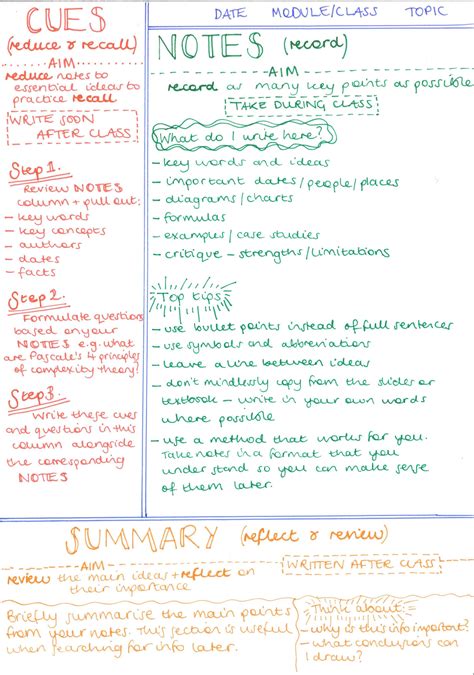 CUES
(reduce & recall)
AIM
reduce notes to
essential ideas to
practice recall
WRITE SOON
AFTER CLASS
Step 1.
Review NOTES
column + pull out:
- key words
- key concepts
- authors
- dates
- facts
Step 2.
Formulate questions
based on your
NOTES e.g. what
are Pascale's 4 principles
of complexity theory?
Step 3.
Write these cues
and questions in this
column alongside
the corresponding
NOTES
DATE MODULE/CLASS TOPIC
NOTES (record)
AIM
record as many key points as possible
TAKE DURING CLASS
What do I write here?
- key words and ideas
- important dates/people/places
- diagrams/charts
- formulas
- examples/case studies
- critique - strengths/limitations
Top tips
- use bullet points instead of full sentences
- use symbols and abbreviations
- leave a line between ideas
- don't mindlessly copy from the slides or
textbook - write in your own words
where possible
- use a method that works for you.
Take notes in a format that you
understand so you can make sense
of them later.
SUMMARY (reflect & review)
AIM
review the main ideas + reflect on
their importance
WRITTEN AFTER CLASS
Briefly summarise the main points
from your notes. This section is useful
when searching for info later.
Think about:
- why is this info important?
- what conclusions can
I draw?